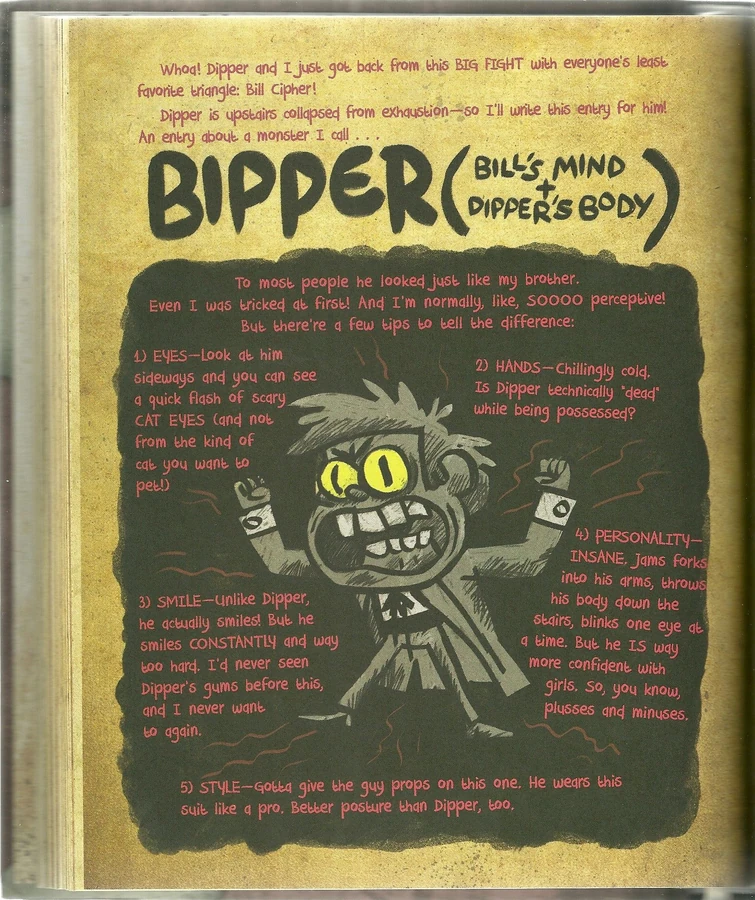 Whoa! Dipper and I just got back from this BIG FIGHT with everyone's least
favorite triangle: Bill Cipher!
Dipper is upstairs collapsed from exhaustion—so I'll write this entry for him!
An entry about a monster I call . . .
BIPPER (BILL'S MIND
+
DIPPER'S BODY)
To most people he looked just like my brother.
Even I was tricked at first! And I'm normally, like, SOOOO perceptive!
But there're a few tips to tell the difference:
1) EYES—Look at him
sideways and you can see
a quick flash of scary
CAT EYES (and not
from the kind of
cat you want to
pet!)
2) HANDS—Chillingly cold.
Is Dipper technically "dead"
while being possessed?
3) SMILE—Unlike Dipper,
he actually smiles! But he
smiles CONSTANTLY and way
too hard. I'd never seen
Dipper's gums before this,
and I never want
to again.
4) PERSONALITY—
INSANE. Jams forks
into his arms, throws
his body down the
stairs, blinks one eye at
a time. But he IS way
more confident with
girls. So, you know,
plusses and minuses.
5) STYLE—Gotta give the guy props on this one. He wears this
suit like a pro. Better posture than Dipper, too.